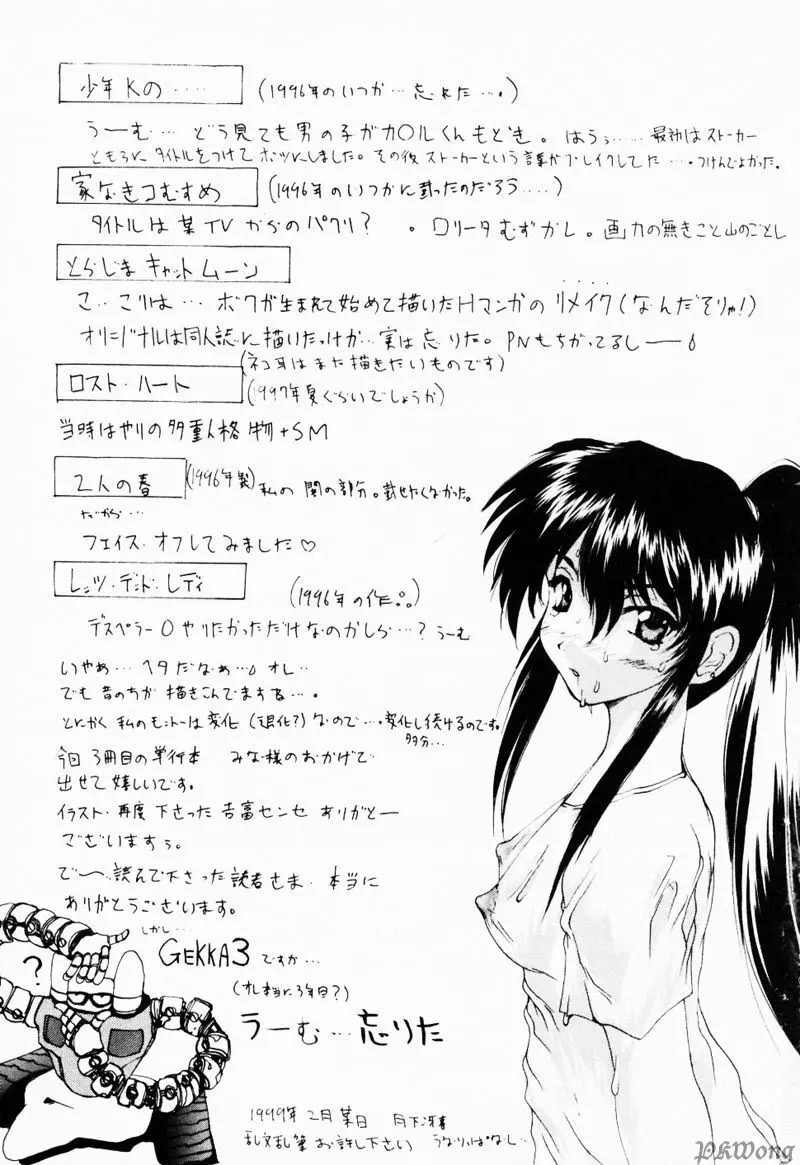 少年Kの‥‥
(1996年のいつか…忘れた…。)
うーむ…どう見ても男の子がカ○ルくんもどき。はうぅ……最初はストーカー
ともろにタイトルをつけてボツにしました。その後ストーカーという言葉がブレイクしてた…。つけんでよかった。
家なきコむすめ
(1996年のいつかに載ったのだろう…)
タイトルは某TVからのパクリ?。ロリータむずかし。画力の無きこと山のごとし
とらじまキャットムーン
こ‥こりは…ボクが生まれて始めて描いたHマンガのリメイク(なんだそりゃ!)
オリジナルは同人誌に描いたっけか…実は忘りた。PNもちがってるし――
(ネコ耳はまた描きたいものです)
ロスト・ハート
(1997年夏ぐらいでしょうか)
当時はやりの多重人格物+SM
2人の春
(1996年製)
私の闇の部分。載せたくなかった。
だから…
フェイス・オフしてみました♡
レッツ・デッド・レディ
(1996年の作。)
デスペラー○やりたかっただけなのかしら…?うーむ
いやぁ…ヘタだなぁ…オレ…
でも昔のちが描きこんでますな…。
とにかく私のもっとーは変化(退化?)なので…。変化し続けるのです。
多分…
今回3冊目の単行本 みな様のおかげで
出せて嬉しいです。
イラスト・再度下さった吉富センセありがとー
ございますぅ。
で〜読んで下さった読者さま・本当に
ありがとうございます。
しかし…
GEKKA3ですか…
(オレ本当に3年目?)
うーむ…忘りた
?
1999年2月某日 月下冴喜
乱文乱筆お許し下さい うなりっぱなし…
PKWong